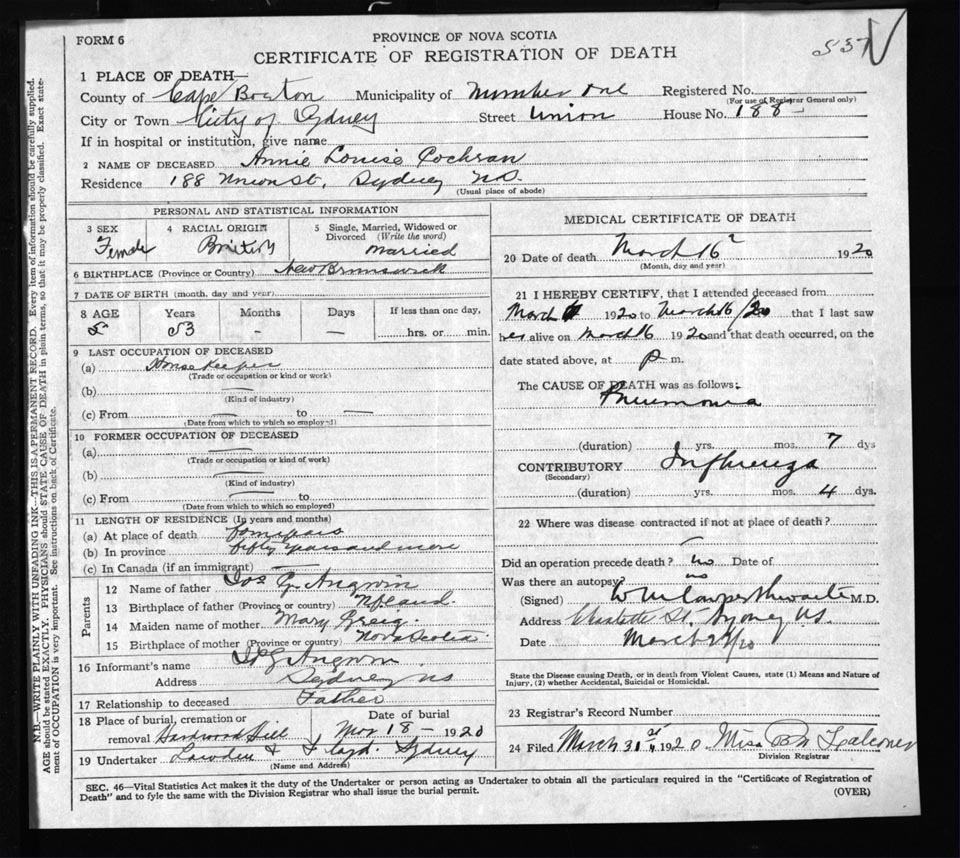 FORM 6
PROVINCE OF NOVA SCOTIA
537
CERTIFICATE OF REGISTRATION OF DEATH
1 PLACE OF DEATH—
County of Cape Breton Municipality of Number One Registered No.
(For use of Registrar General only)
City or Town City of Sydney Street Union House No. 188
If in hospital or institution, give name
2 NAME OF DECEASED Annie Louise Cochran
Residence 188 Union St, Sydney N.S.
(Usual place of abode)
PERSONAL AND STATISTICAL INFORMATION
3 SEX Female
4 RACIAL ORIGIN British
5 Single, Married, Widowed or Divorced (Write the word) Married
6 BIRTHPLACE (Province or Country) New Brunswick
7 DATE OF BIRTH (month, day and year)
8 AGE Years Months Days If less than one day,
53 – – hrs. or min.
9 LAST OCCUPATION OF DECEASED
(a) House Keeper
(Trade or occupation or kind or work)
(b) —
(Kind of industry)
(c) From — to —
(Date from which to which so employed)
10 FORMER OCCUPATION OF DECEASED
(a) —
(Trade or occupation or kind of work)
(b) —
(Kind of industry)
(c) From — to
(Date from which to which so employed)
11 LENGTH OF RESIDENCE (In years and months)
(a) At place of death years
(b) In province fifty years and more
(c) In Canada (if an immigrant) —
Parents
12 Name of father Jos G. Angwin
13 Birthplace of father (Province or country) Nfland.
14 Maiden name of mother Mary Greig
15 Birthplace of mother (Province or country) Nova Scotia
16 Informant's name Jos G Angwin
Address Sydney NS
17 Relationship to deceased Father
18 Place of burial, cremation or Date of burial
removal Hardwood Hill Mar 18 – 1920
19 Undertaker Lowden & Sydney
(Name and Address)
MEDICAL CERTIFICATE OF DEATH
20 Date of death March 16 1920
(Month, day and year)
21 I HEREBY CERTIFY, that I attended deceased from
March 1920 to March 16/20 that I last saw
her alive on March 16 1920 and that death occurred, on the
date stated above, at p m.
The CAUSE OF DEATH was as follows:
Pneumonia
(duration) yrs. mos. 7 dys
CONTRIBUTORY Influenza
(Secondary)
(duration) yrs. mos. 4 dys.
22 Where was disease contracted if not at place of death?
Did an operation precede death? no Date of
Was there an autopsy? no
(Signed) M.D.
Address Charlotte St. Sydney N.S.
Date March /20
State the Disease causing Death, or in death from Violent Causes, state (1) Means and Nature of
Injury, (2) whether Accidental, Suicidal or Homicidal.
23 Registrar's Record Number
24 Filed March 31st 1920. Miss Falconer
Division Registrar
SEC. 46—Vital Statistics Act makes it the duty of the Undertaker or person acting as Undertaker to obtain all the particulars required in the "Certificate of Registration of
Death" and to fyle the same with the Division Registrar who shall issue the burial permit.
(OVER)
N.B.—WRITE PLAINLY WITH UNFADING INK—THIS IS A PERMANENT RECORD. Every item of information should be carefully supplied.
AGE should be stated EXACTLY. PHYSICIANS should STATE CAUSE OF DEATH in plain terms, so that it may be properly classified. Exact state-
ment of OCCUPATION is very important. See instructions on back of Certificate.